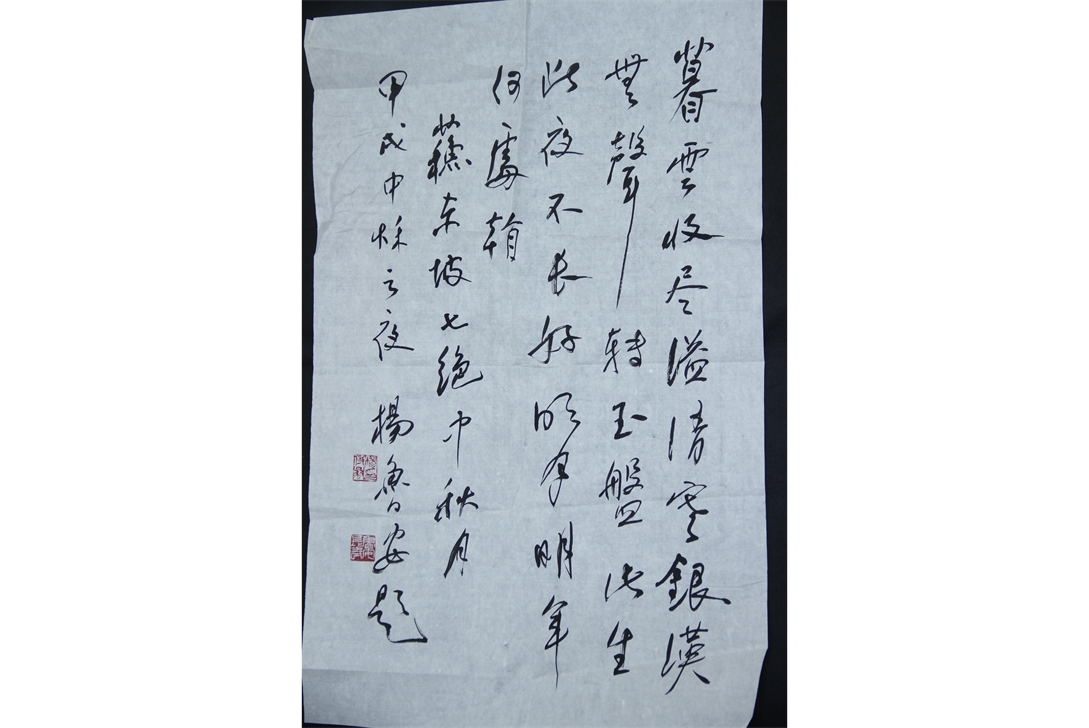 暮雲收尽溢清寒銀漢
無聲轉玉盤此生
此夜不长好明月明年
何處看
蘇东坡七絶中秋月
甲戌中秋之夜 楊魯安題